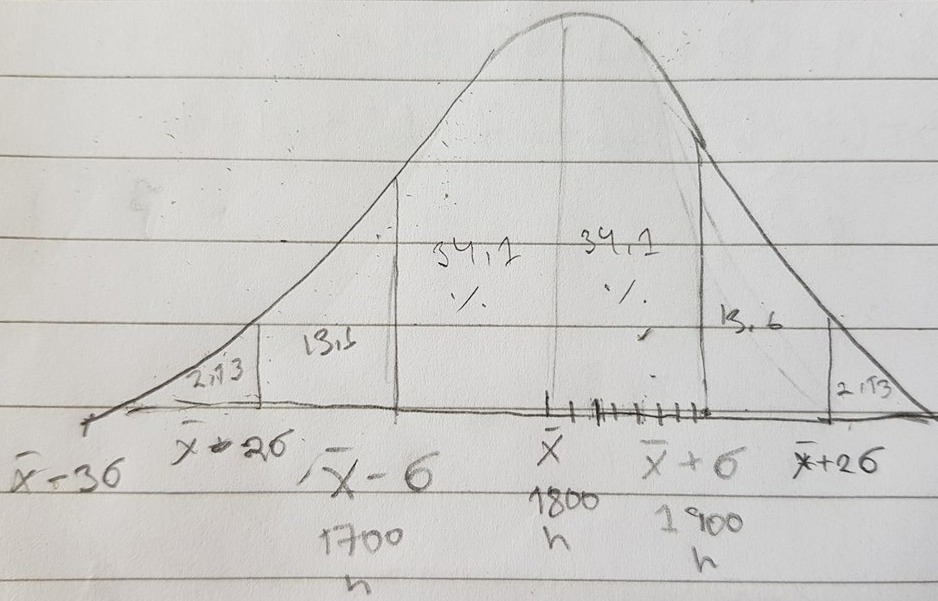 34,1 34,1
% %
13,1 13,6
2,13 2,13
x̄-3σ x̄-2σ x̄-σ x̄ x̄+σ x̄+2σ
1700 1800 1900
h h h